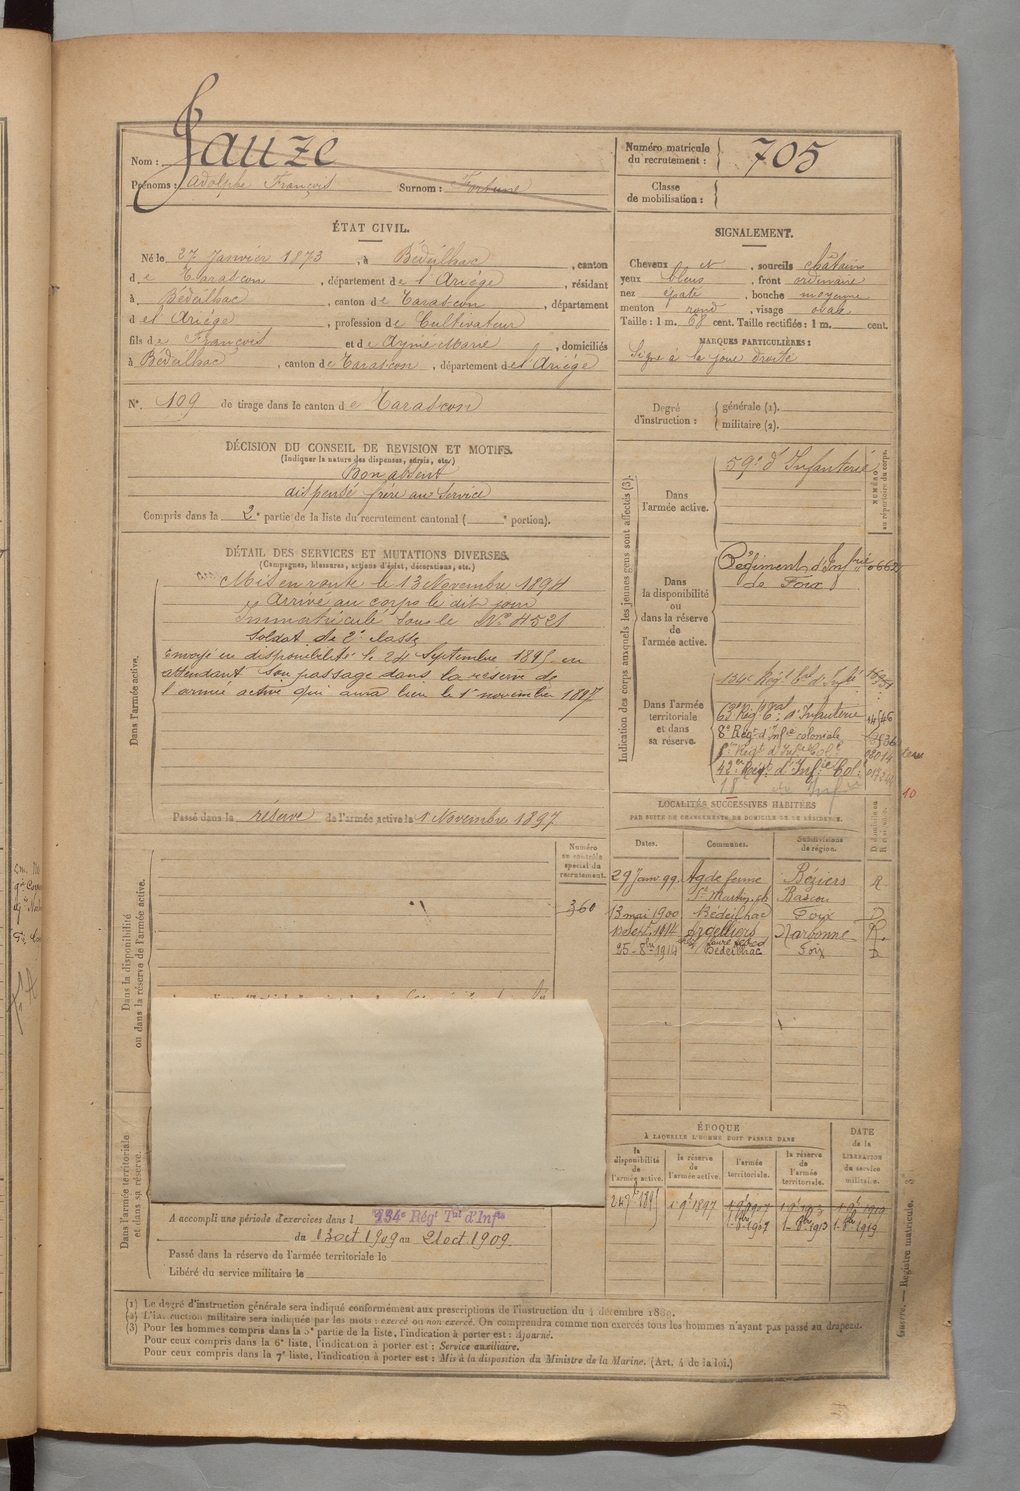 Nom : Jauze
Prénoms : Adolphe François Surnom : Fortuné
Numéro matricule du recrutement : 705
Classe de mobilisation :
ÉTAT CIVIL.
Né le 27 Janvier 1873, à Bédeilhac, canton
de Tarascon, département de l'Ariége, résidant
à Bédeilhac, canton de Tarascon, département
de l'Ariége, profession de Cultivateur
fils de François et de Aynié Marie, domiciliés
à Bédeilhac, canton de Tarascon, département de l'Ariége
N°. 109 de tirage dans le canton de Tarascon
SIGNALEMENT.
Cheveux et, sourcils châtains
yeux bleus, front ordinaire
nez épaté, bouche moyenne
menton rond, visage ovale
Taille : 1 m. 68 cent. Taille rectifiée : 1 m. cent.
MARQUES PARTICULIÈRES :
Signe à la joue droite
Degré d'instruction : générale (1).
militaire (2).
DÉCISION DU CONSEIL DE REVISION ET MOTIFS.
(Indiquer la nature des dispenses, sursis, etc.)
Bon absent
dispensé frère au service
Compris dans la 2e partie de la liste du recrutement cantonal ( e portion).
DÉTAIL DES SERVICES ET MUTATIONS DIVERSES.
(Campagnes, blessures, actions d'éclat, décorations, etc.)
Dans l'armée active.
Mis en route le 13 Novembre 1894
Arrivé au corps le dit jour
Immatriculé sous le N° 4521
Soldat de 2e classe
Envoyé en disponibilité le 24 Septembre 1895 en
attendant son passage dans la réserve de
l'armée active qui aura lieu le 1er novembre 1897
Passé dans la réserve de l'armée active le 1 Novembre 1897
Indication des corps auxquels les jeunes gens sont affectés (3).
NUMÉRO au répertoire du corps.
Dans l'armée active.
59e d'Infanterie
Dans la disponibilité ou dans la réserve de l'armée active.
Régiment d'Infrie
de Foix
Dans l'armée territoriale et dans sa réserve.
134e Régt tal d'Infie
63e Rég. d'Infanterie
8e Régt d'Infie coloniale
Régt d'Infie Colle
42e Régt d'Infie Col.
10
LOCALITÉS SUCCESSIVES HABITÉES
PAR SUITE DE CHANGEMENTS DE DOMICILE OU DE RÉSIDENCE.
Dates. Communes. Subdivisions de région.
29 Janv 99 Agde ferme Béziers R
St Martin
13 mai 1900 Bédeilhac Foix D
Argelliers Narbonne R.
25 - 8bre 1914 Bédeilhac Foix D
Numéro au contrôle spécial du recrutement.
360
Dans la disponibilité ou dans la réserve de l'armée active.
Dans l'armée territoriale et dans sa réserve.
A accompli une période d'exercices dans l 134e Régt Tal d'Infie
du 13 oct 1909 au 21 oct 1909.
Passé dans la réserve de l'armée territoriale le
Libéré du service militaire le
ÉPOQUE
À LAQUELLE L'HOMME DOIT PASSER DANS
DATE de la LIBÉRATION du service militaire.
la disponibilité de l'armée active. la réserve de l'armée active. l'armée territoriale. la réserve de l'armée territoriale.
24 7bre 1895 1er 9bre 1897
Guerre. — Registre matricule.
(1) Le degré d'instruction générale sera indiqué conformément aux prescriptions de l'instruction du 4 décembre 1889.
(2) L'instruction militaire sera indiquée par les mots : exercé ou non exercé. On comprendra comme non exercés tous les hommes n'ayant pas passé au drapeau.
(3) Pour les hommes compris dans la 5e partie de la liste, l'indication à porter est : Ajourné.
Pour ceux compris dans la 6e liste, l'indication à porter est : Service auxiliaire.
Pour ceux compris dans la 7e liste, l'indication à porter est : Mis à la disposition du Ministre de la Marine. (Art. 4 de la loi.)